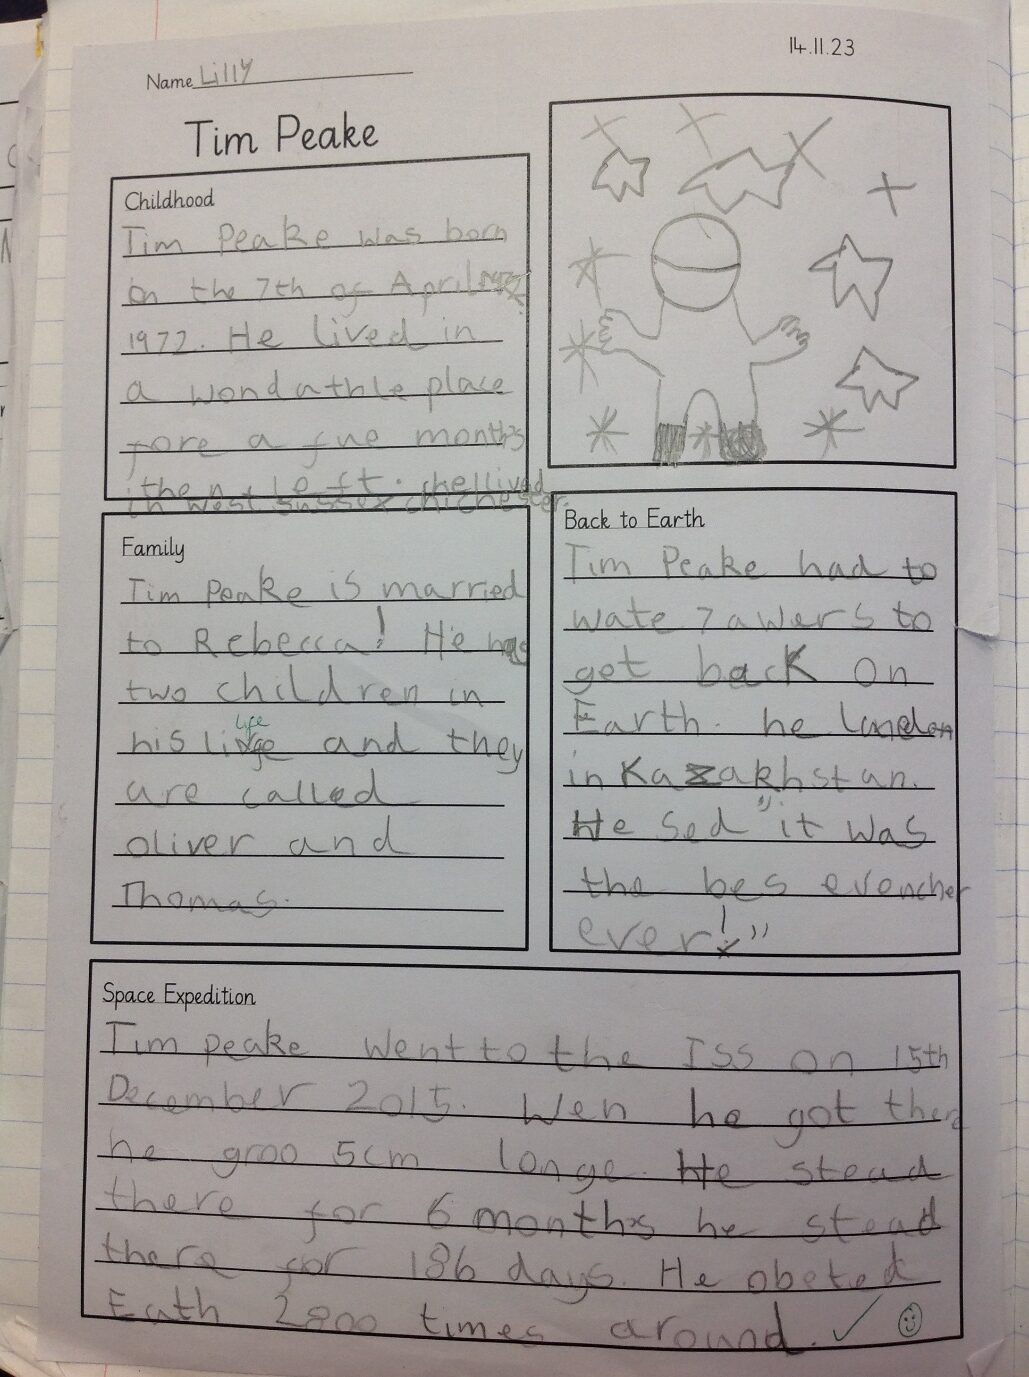 14.11.23
Name Lilly
Tim Peake
Childhood
Tim Peake was born
on the 7th of April
1972. He lived in
a wondathle place
fore a fue months
then left. he llived
in west sussex chichester.
Family
Tim Peake is married
to Rebecca! He has
two children in
life
his and they
are called
oliver and
Thomas.
Back to Earth
Tim Peake had to
wate 7 awers to
get back on
Earth. he landen
in Kazakhstan.
He sed "it was
the bes evencher
ever!"
Space Expedition
Tim peake went to the ISS on 15th
December 2015. Wen he got there
he groo 5cm longe. He stead
there for 6 months he stead
there for 186 days. He obeted
Eath 2800 times around.